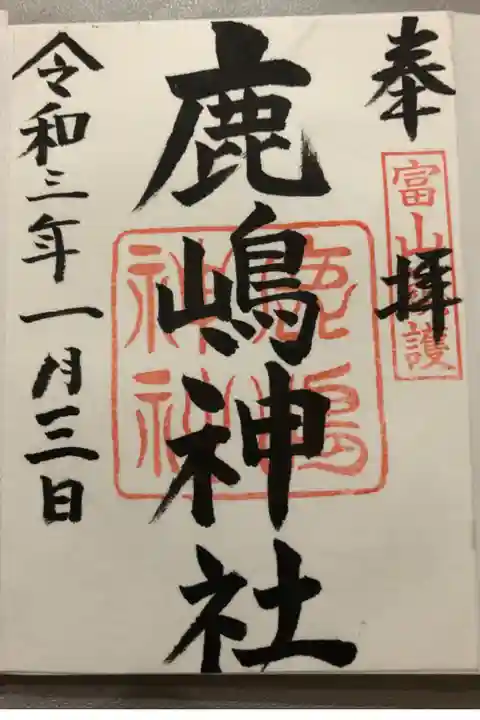 奉拝
富山 護
鹿嶋神社
鹿嶋
神
令和三年一月三日